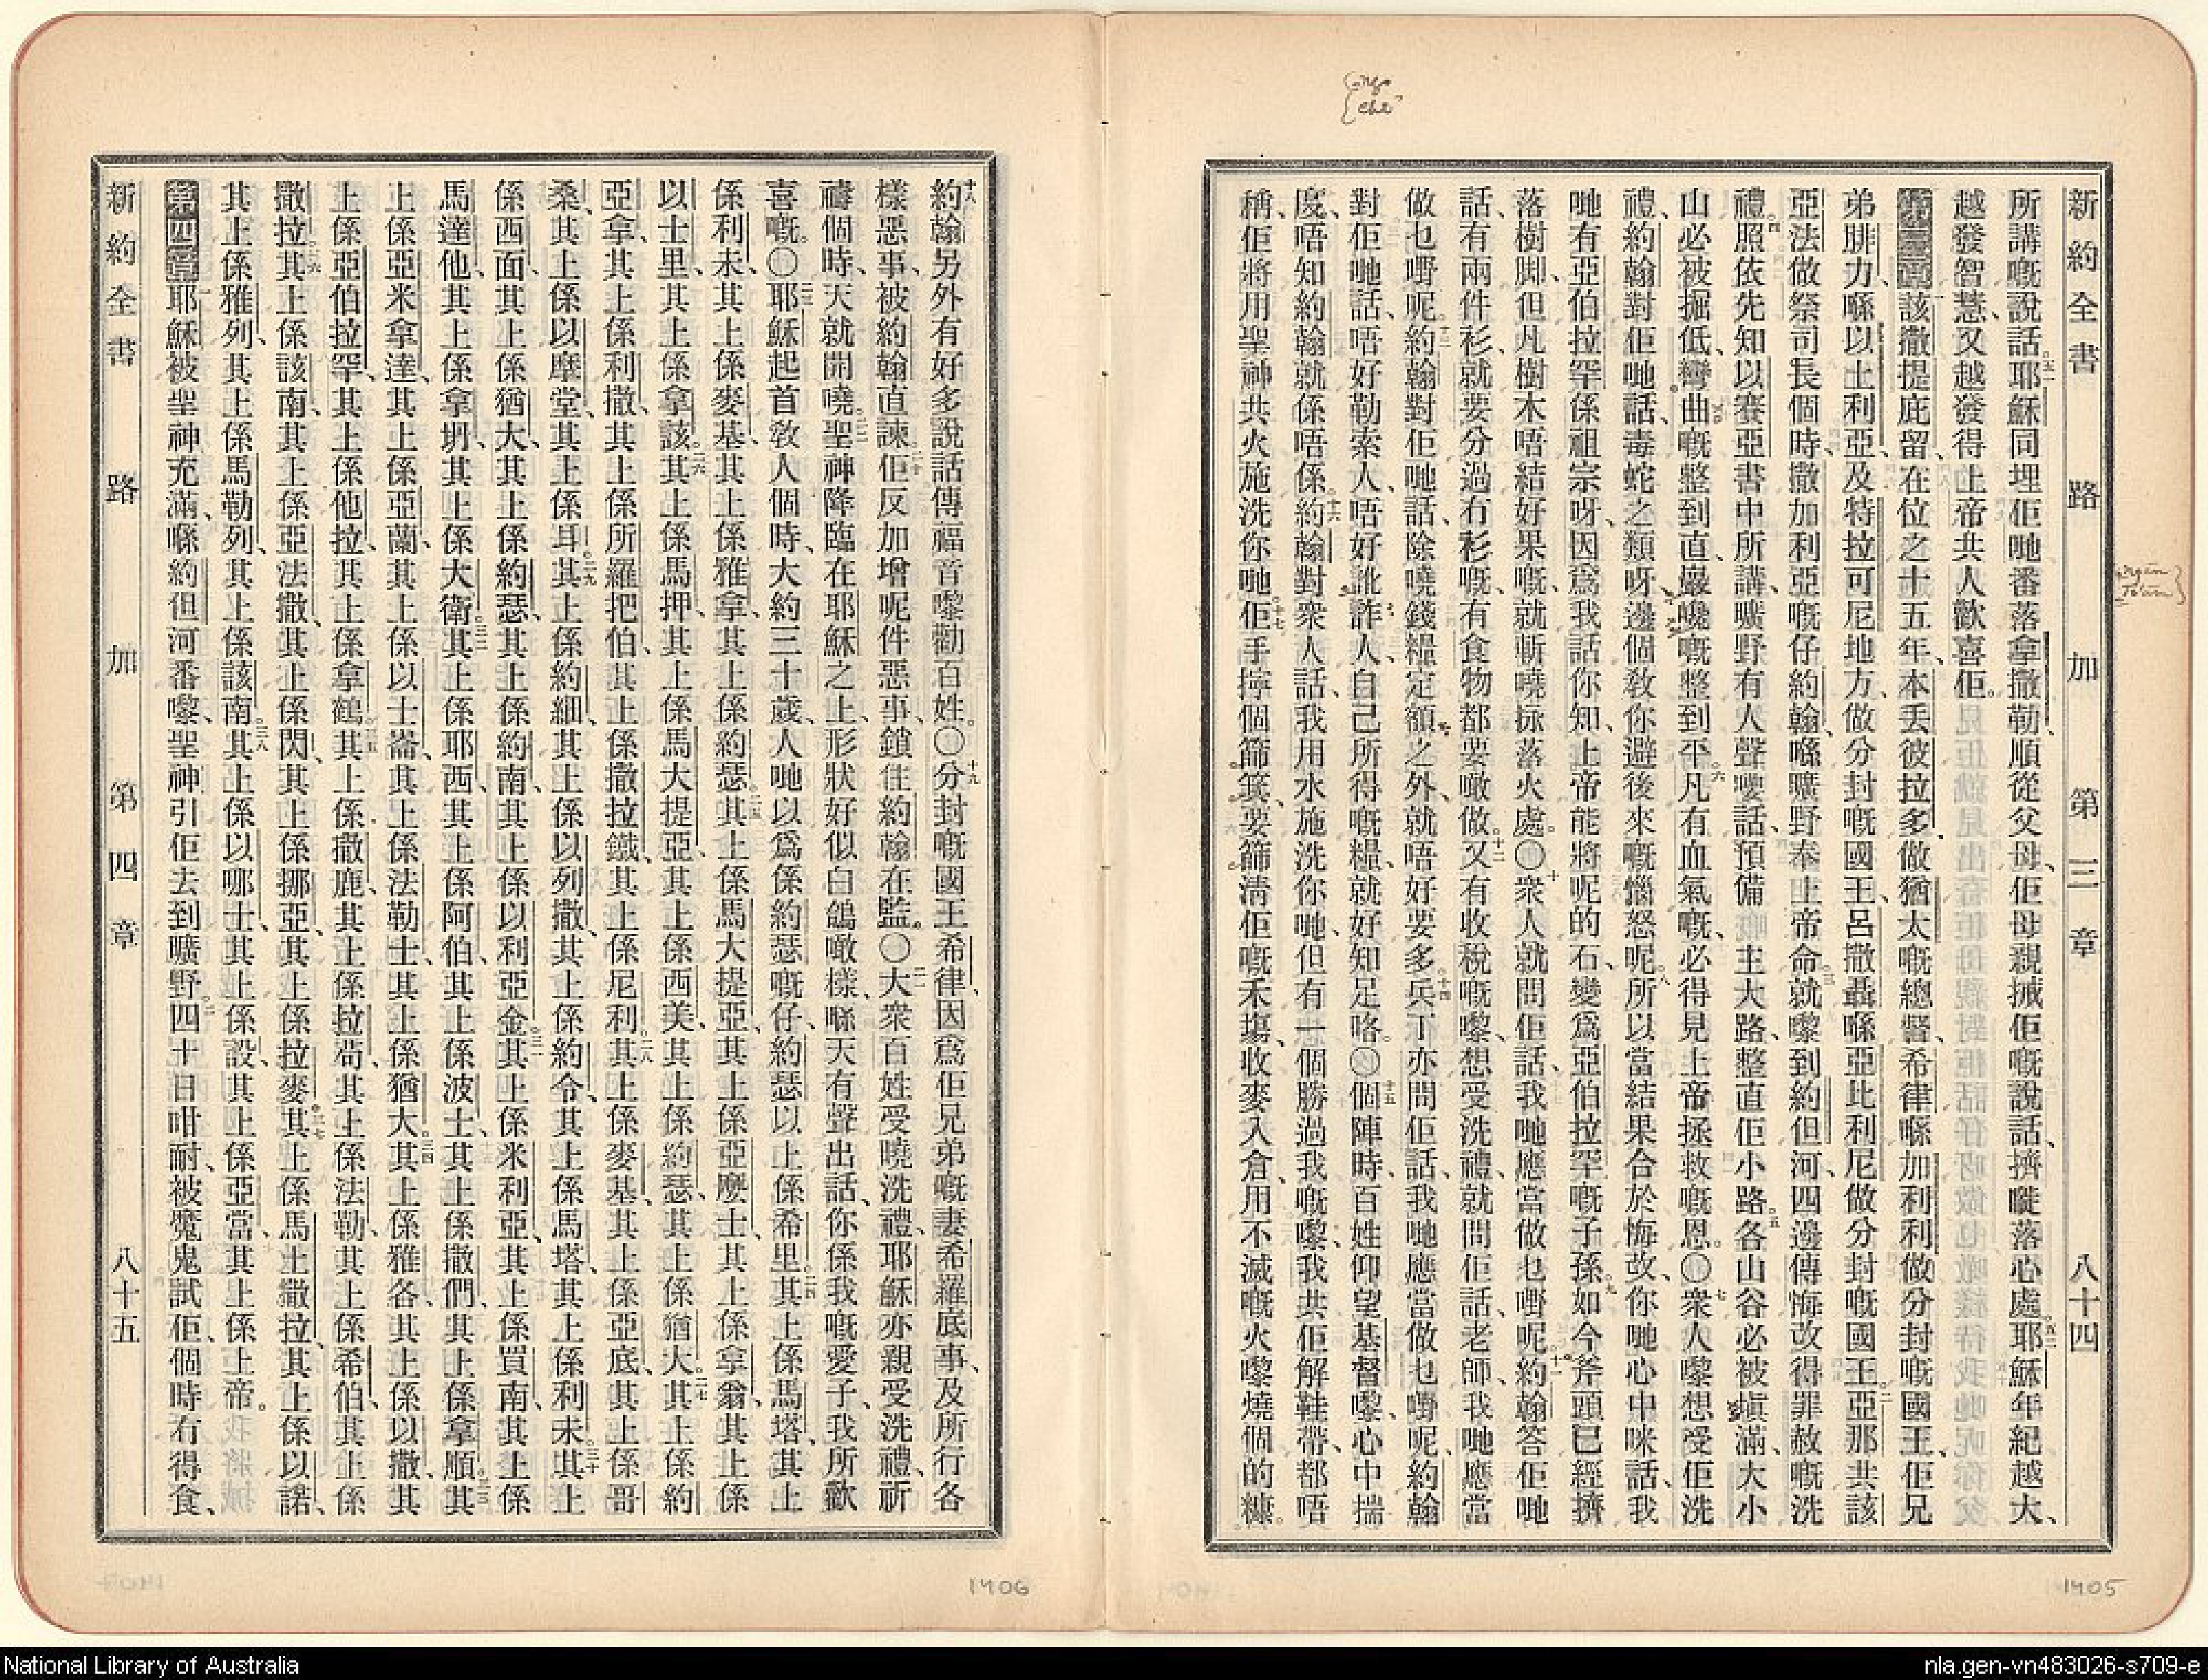 新約全書 路加 第三章 八十四
所講嘅說話。五一耶穌同埋佢哋番落拿撒勒、順從父母、佢母親揻佢嘅說話、擠嚡落心處。五二耶穌年紀越大、
越發智慧、又越發得上帝共人歡喜佢。
第三章該撒提庇留、在位之十五年、本丟彼拉多、做猶太嘅總督、希律喺加利利做分封嘅國王、佢兄
弟腓力、喺以土利亞、及特拉可尼地方、做分封嘅國王、呂撒聶喺亞比利尼做分封嘅國王、二亞那共該
亞法做祭司長個時、撒加利亞嘅仔約翰、喺曠野奉上帝命、三就嚟到約但河、四邊傳悔改得罪赦嘅洗
禮。四照依先知以賽亞書中所講、曠野有人聲嘤話、預備主大路、整直佢小路。五各山谷必被塡滿、大小
山必被掘低、彎曲嘅整到直、巖巉嘅整到平。六凡有血氣嘅、必得見上帝拯救嘅恩。〇七衆人嚟想受佢洗
禮、約翰對佢哋話、毒蛇之類呀、邊個敎你避後來嘅惱怒呢。八所以當結果合於悔改、你哋心中咪話、我
哋有亞伯拉罕係祖宗呀、因爲我話你知、上帝能將呢的石、變爲亞伯拉罕嘅子孫。九如今斧頭已經擠
落樹脚、但凡樹木唔結好果嘅、就斬嘵揼落火處。〇十衆人就問佢話、我哋應當做乜嘢呢。十一約翰答佢哋
話、有兩件衫、就要分過冇衫嘅、有食物都要噉做。十二又有收稅嘅嚟、想受洗禮、就問佢話、老師、我哋應當
做乜嘢呢。十三約翰對佢哋話、除嘵錢糧定額之外、就唔好要多。十四兵丁亦問佢話、我哋應當做乜嘢呢、約翰
對佢哋話、唔好勒索人、唔好訛詐人、自己所得嘅糧、就好知足咯。〇十五個陣時、百姓仰望基督嚟、心中揣
度、唔知約翰就係唔係。十六約翰對衆人話、我用水施洗你哋、但有一個勝過我嘅嚟、我共佢解鞋帶、都唔
稱、佢將用聖神共火施洗你哋。十七佢手擰個篩箕、要篩淸佢嘅禾塲、收麥入倉、用不滅嘅火嚟燒個的糠。
1405
十八約翰另外有好多說話、傳福音嚟勸百姓。〇十九分封嘅國王希律、因爲佢兄弟嘅妻希羅底事、及所行各
樣惡事、被約翰直諫、二十佢反加增呢件惡事、鎖住約翰在監。〇二一大衆百姓受嘵洗禮、耶穌亦親受洗禮、祈
禱個時、天就開嘵、二二聖神降臨在耶穌之上、形狀好似白鴿噉樣、喺天有聲出話、你係我嘅愛子、我所歡
喜嘅。〇二三耶穌起首敎人個時、大約三十歲、人哋以爲係約瑟嘅仔、約瑟以上係希里、二四其上係馬塔、其上
係利未、其上係麥基、其上係雅拿、其上係約瑟、二五其上係馬大提亞、其上係亞麼士、其上係拿翁、其上係
以士里、其上係拿該、二六其上係馬押、其上係馬大提亞、其上係西美、其上係約瑟、其上係猶大、二七其上係約
亞拿、其上係利撒、其上係所羅把伯、其上係撒拉鐵、其上係尼利、二八其上係麥基、其上係亞底、其上係哥
桑、其上係以摩堂、其上係耳、二九其上係約細、其上係以列撒、其上係約令、其上係馬塔、其上係利未、三十其上
係西面、其上係猶大、其上係約瑟、其上係約南、其上係以利亞金、三一其上係米利亞、其上係買南、其上係
馬達他、其上係拿坍、其上係大衛、三二其上係耶西、其上係阿伯、其上係波士、其上係撒們、其上係拿順、三三其
上係亞米拿達、其上係亞蘭、其上係以士崙、其上係法勒士、其上係猶大、三四其上係雅各、其上係以撒、其
上係亞伯拉罕、其上係他拉、其上係拿鶴、三五其上係撒鹿、其上係拉苟、其上係法勒、其上係希伯、其上係
撒拉、三六其上係該南、其上係亞法撒、其上係閃、其上係挪亞、其上係拉麥、三七其上係馬土撒拉、其上係以諾、
其上係雅列、其上係馬勒列、其上係該南、三八其上係以哪士、其上係設、其上係亞當、其上係上帝。
第四章一耶穌被聖神充滿、喺約但河番嚟、聖神引佢去到曠野、二四十日咁耐、被魔鬼試佢、個時冇得食、
新約全書 路加 第四章 八十五
1406
National Library of Australia
nla.gen-vn483026-s709-e